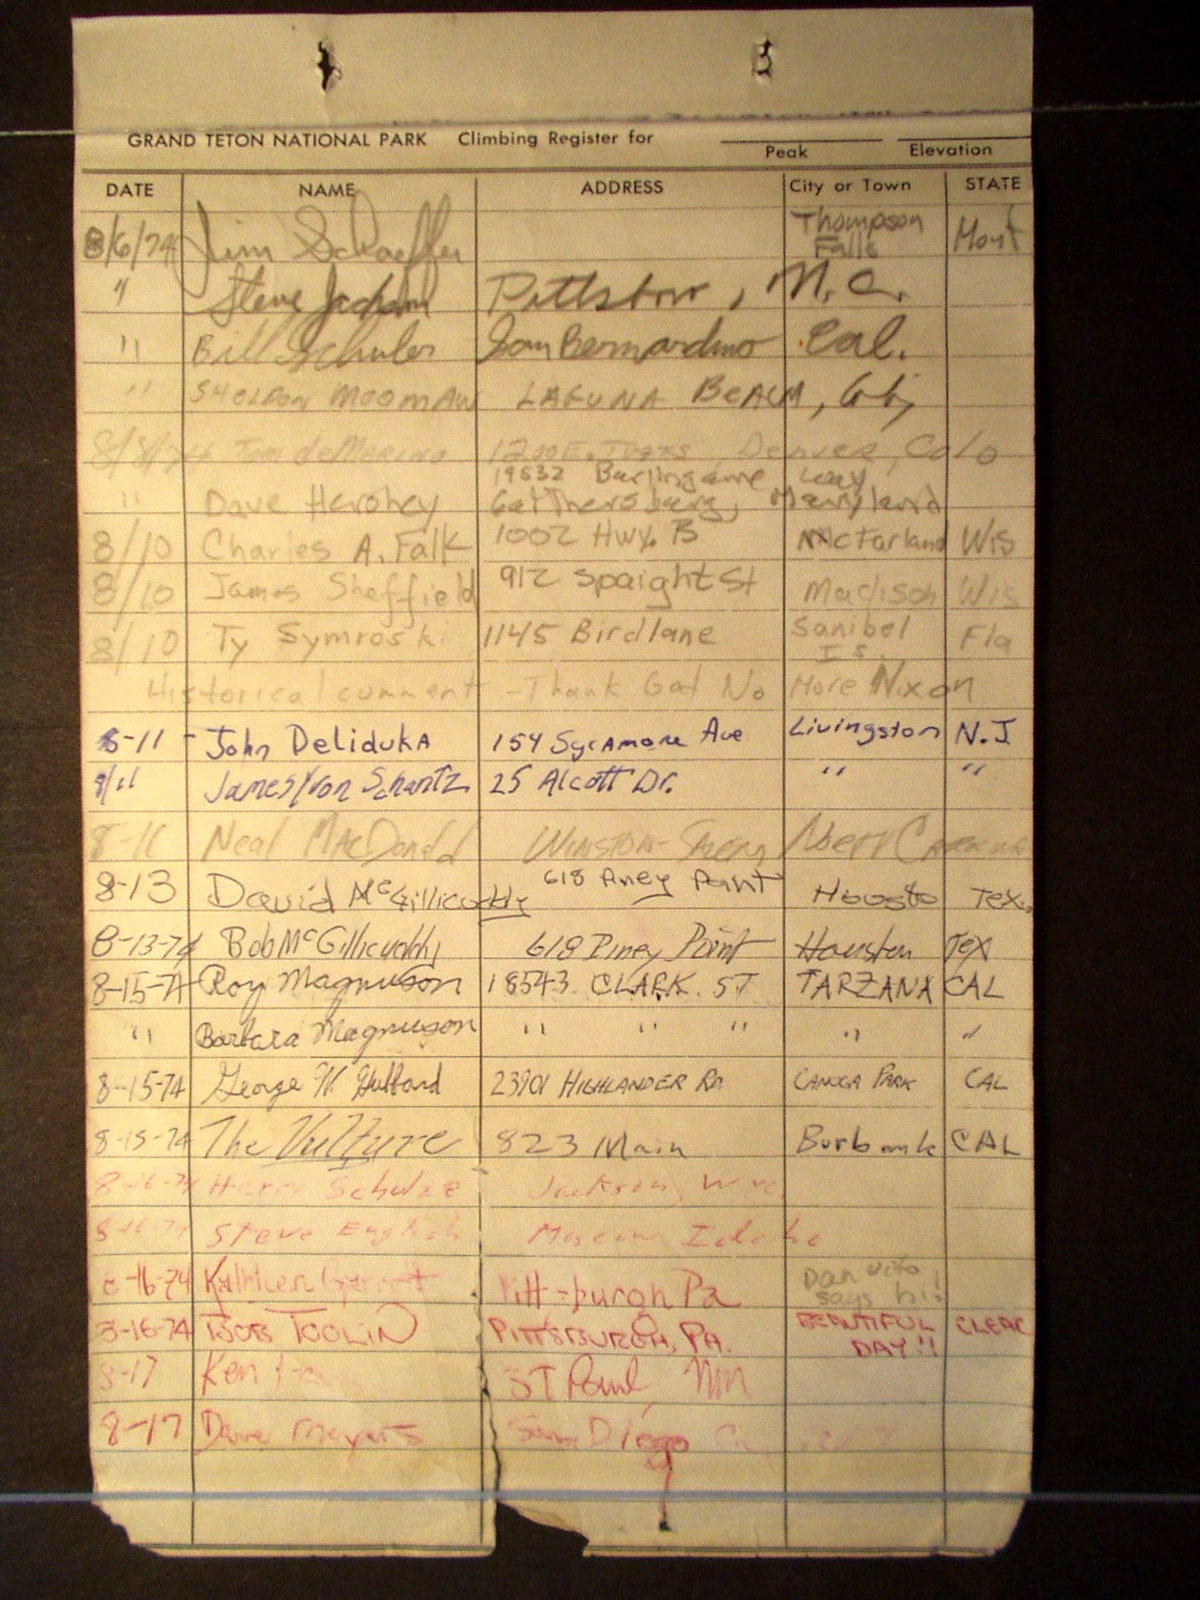 GRAND TETON NATIONAL PARK Climbing Register for
Peak Elevation
DATE NAME ADDRESS City or Town STATE
8/6/74 Jim Schaeffer Thompson Falls Mont
" Steve Jackson Pittsboro, N.C.
" Bill Schuler San Bernardino Cal.
" SHELDON MOOMAW LAGUNA BEACH,
8/8/74 Tom 1200 E. Denver, Colo
19632 Burlingame Way
" Dave Hershey Gaithersburg, Maryland
8/10 Charles A. Falk 1002 Hwy. B McFarland Wis
8/10 James Sheffield 912 Spaight St Madison Wis
8/10 Ty Symroski 1145 Birdlane Sanibel Is. Fla
Historical comment - Thank God No More Nixon
8-11 John Deliduka 154 Sycamore Ave Livingston N.J
8/11 James Von Schantz 25 Alcott Dr. " "
8-11 Neal MacDonald Winston-Salem North Carolina
8-13 David McGillicuddy 618 Piney Point Housto Tex.
8-13-74 Bob McGillicuddy 618 Piney Point Houston Tex
8-15-74 Roy Magnuson 18543 CLARK ST TARZANA CAL
" Barbara Magnuson " " " " "
8-15-74 George W. Hubbard 23901 HIGHLANDER RD CANOGA PARK CAL
8-15-74 The Vulture 823 Main Burbank CAL
8-16-74 Harry Schulze Jackson, Wyo.
8-16-74 Steve English Moscow Idaho
8-16-74 Kathleen Pittsburgh Pa Dan Vito says hi!
8-16-74 BOB TOOLIN PITTSBURGH, PA. BEAUTIFUL DAY!! CLEAR
8-17 Ken ST Paul, Mn
8-17 Dave Meyers San Diego Ca